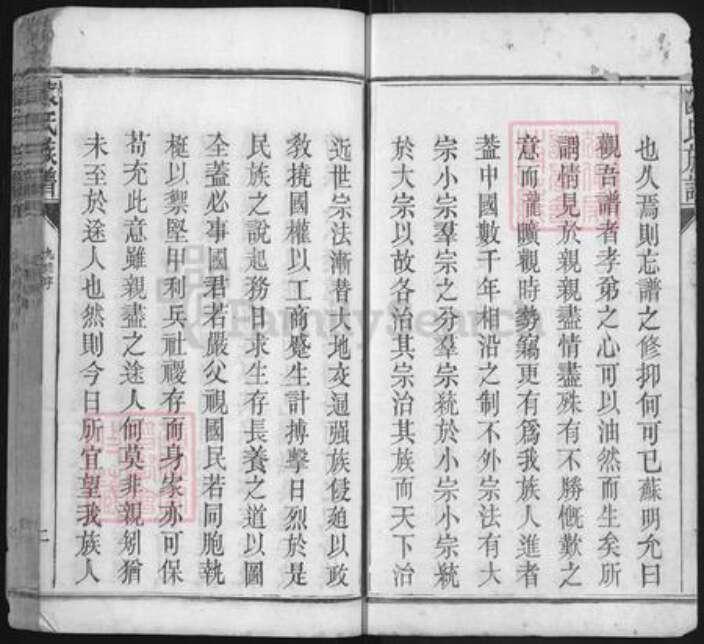 也久焉則忘譜之修抑何可已蘇明允曰
觀吾譜者孝弟之心可以油然而生矣所
謂情見於親親盡情盡殊有不勝慨歎之
意而瀧曠觀時勢竊更有爲我族人進者
蓋中國數千年相沿之制不外宗法有大
宗小宗羣宗之分羣宗統於小宗小宗統
於大宗以故各治其宗治其族而天下治
近世宗法漸替大地交通强族侵廹以政
教撓國權以工商蹙生計搏擊日烈於是
民族之說起務日求生存長養之道以圖
全蓋必事國君若嚴父視國民若同胞執
梃以禦堅甲利兵社稷存而身家亦可保
苟充此意雖親盡之途人何莫非親矧猶
未至於途人也然則今日所宜望我族人
氏族譜
二
FamilySearch